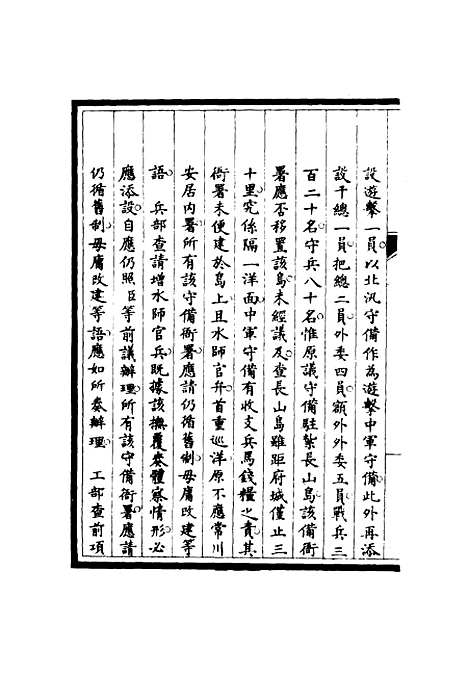 設遊擊一員以北汛守備作為遊擊中軍守備此外再添
設千總一員把總二員外委四員額外外委五員戰兵三
百二十名守兵八十名惟原議守備駐紮長山島該備衙
署應否移置該島未經議及查長山島雖距府城僅止三
十里究係隔一洋面中軍守備有收支兵馬錢糧之責其
衙署未便建於島上且水師官弁首重巡洋原不應常川
安居內署所有該守備衙署應請仍循舊制毋庸改建等
語 兵部查請增水師官兵既據該撫覆奏體察情形必
應添設自應仍照臣等前議辦理所有該守備衙署應請
仍循舊制毋庸改建等語應如所奏辦理 工部查前項